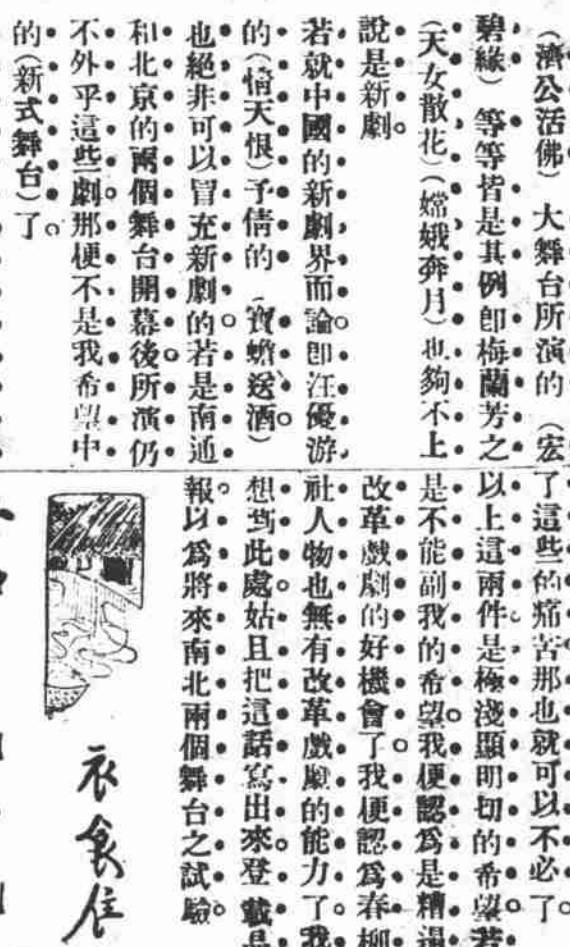 （濟公活佛）大舞台所演的（宏
碧緣）等等皆是其例卽梅蘭芳之
（天女散花）（嫦娥奔月）也夠不上
說是新劇。
若就中國的新劇界而論。卽汪優游
的（情天恨）予倩的（寶蟾送酒）
也絕非可以冒充新劇的。若是南通
和北京的兩個舞台開幕後。所演仍
不外乎這些劇。那便不是我希望中
的（新式舞台）了。
了這些的痛苦那也就可以不必了。
以上這兩件。是極淺顯明切的希望。若
是不能副我的希望。我便認爲是糟
改革戲劇的好機會了。我便認爲春柳
社人物也無有改革戲劇的能力了。我
想到此處。姑且把這話寫出來。登載
報。以爲將來南北兩個舞台之試驗。
衣食住